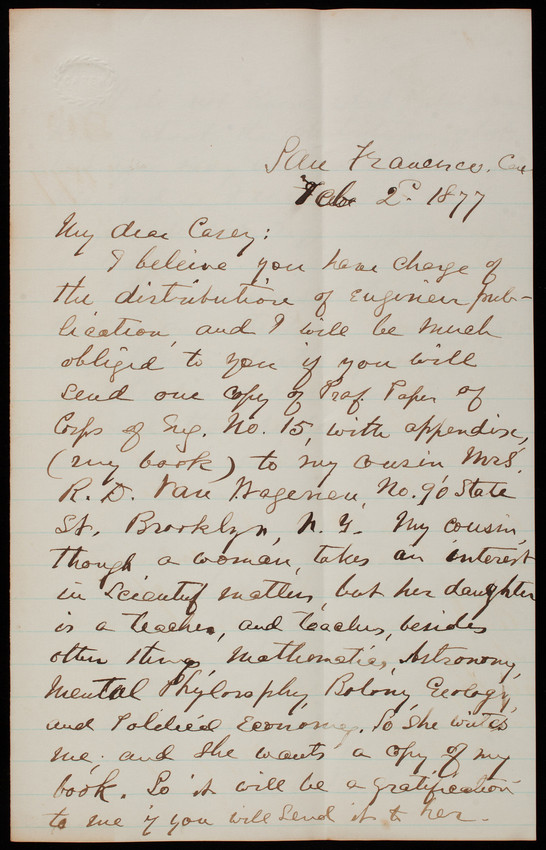 San Francisco. Cal
Feb 2d 1877
My dear Casey:
I beleive you have charge of
the distribution of Engineer pub-
lication, and I will be much
obliged to you if you will
send one copy of Prof. Paper of
Corps of Eng. No. 15, with appendix,
(my book) to my cousin Mrs.
R. D. Van Wagenen, No. 90 State
St. Brooklyn, N. Y. My cousin,
though a woman, takes an interest
in Scientif matters, but her daughter
is a teacher, and teaches, besides
other things, Mathematics, Astronomy,
Mental Phylosophy, Botony, Geology,
and Political Economy. So she writes
me; and she wants a copy of my
book. So it will be a gratification
to me if you will send it to her.